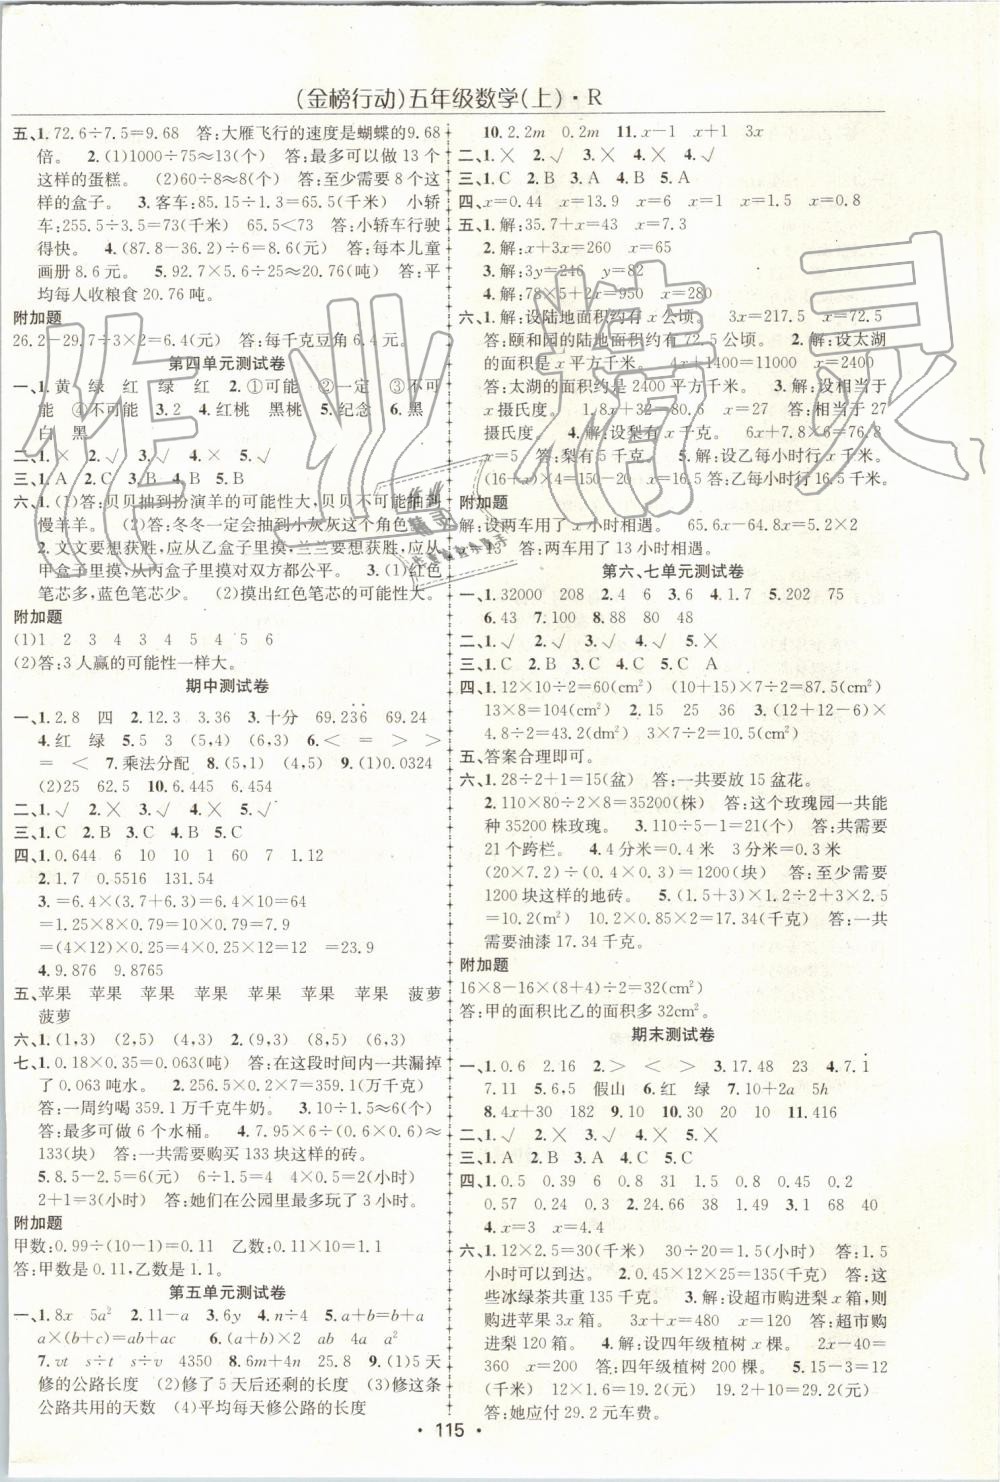 (金榜行动)五年级数学(上)·R
五、1. 72.6÷7.5=9.68 答:大雁飞行的速度是蝴蝶的9.68
倍。 2. (1)1000÷75≈13(个) 答:最多可以做 13 个
这样的蛋糕。 (2)60÷8≈8(个) 答:至少需要 8 个这
样的盒子。 3. 客车:85.15÷1.3=65.5(千米) 小轿
车:255.5÷3.5=73(千米) 65.5<73 答:小轿车行驶
得快。 4. (87.8-36.2)÷6=8.6(元) 答:每本儿童
画册 8.6 元。 5. 92.7×5.6÷25≈20.76(吨) 答:平
均每人收粮食 20.76 吨。
附加题
26.2-29.7÷3×2=6.4(元) 答:每千克豆角 6.4 元。
第四单元测试卷
一、1. 黄 绿 红 绿 红 2. ①可能 ②一定 ③不可
能 ④不可能 3. 2 4. 红桃 黑桃 5. 纪念 6. 黑
白 黑
二、1. × 2. √ 3. √ 4. × 5. √
三、1. A 2. C 3. A 4. B 5. B
六、1. (1)答:贝贝抽到扮演羊的可能性大,贝贝不可能抽到
慢羊羊。 (2)答:冬冬一定会抽到小灰灰这个角色。
2. 文文要想获胜,应从乙盒子里摸,兰兰要想获胜,应从
甲盒子里摸,从丙盒子里摸对双方都公平。 3. (1)红色
笔芯多,蓝色笔芯少。 (2)摸出红色笔芯的可能性大。
附加题
(1)1 2 3 4 3 4 5 4 5 6
(2)答:3 人赢的可能性一样大。
期中测试卷
一、1. 2.8 四 2. 12.3 3.36 3. 十分 69.2̇3̇6̇ 69.24
4. 红 绿 5. 5 3 (5,4) (6,3) 6. < = > >
= < 7. 乘法分配 8. (5,1) (4,5) 9. (1)0.0324
(2)25 62.5 10. 6.445 6.454
二、1. √ 2. × 3. √ 4. × 5. √
三、1. C 2. B 3. C 4. B 5. C
四、1. 0.644 6 10 10 1 60 7 1.12
2. 1.7 0.5516 131.54
3. =6.4×(3.7+6.3)=6.4×10=64
=1.25×8×0.79=10×0.79=7.9
=(4×12)×0.25=4×0.25×12=12 =23.9
4. 9.876 9.8765
五、苹果 苹果 苹果 苹果 苹果 苹果 苹果 菠萝
菠萝
六、1. (1,3) (2,5) (4,3) 2. (4,5) (8,5) (6,3)
七、1. 0.18×0.35=0.063(吨) 答:在这段时间内一共漏掉
了 0.063 吨水。 2. 256.5×0.2×7=359.1(万千克)
答:一周约喝 359.1 万千克牛奶。 3. 10÷1.5≈6(个)
答:最多可做 6 个水桶。 4. 7.95×6÷(0.6×0.6)≈
133(块) 答:一共需要购买 133 块这样的砖。
5. 8.5-2.5=6(元) 6÷1.5=4 4×0.5=2(小时)
2+1=3(小时) 答:她们在公园里最多玩了 3 小时。
附加题
甲数:0.99÷(10-1)=0.11 乙数:0.11×10=1.1
答:甲数是 0.11,乙数是 1.1。
第五单元测试卷
一、1. 8x 5a² 2. 11-a 3. 6y 4. n÷4 5. a+b=b+a
a×(b+c)=ab+ac 6. (a+b)×2 4a a²
7. vt s÷t s÷v 4350 8. 6m+4n 25.8 9. (1)5 天
修的公路长度 (2)修了 5 天后还剩的长度 (3)修这条
公路共用的天数 (4)平均每天修公路的长度
10. 2.2m 0.2m 11. x-1 x+1 3x
二、1. × 2. √ 3. × 4. × 4. √
三、1. C 2. B 3. A 4. B 5. A
四、x=0.44 x=13.9 x=6 x=1 x=1.5 x=0.8
五、1. 解:35.7+x=43 x=7.3
2. 解:x+3x=260 x=65
3. 解:3y=246 y=82
4. 解:78×5+2x=950 x=280
六、1. 解:设陆地面积约有 x 公顷。 3x=217.5 x=72.5
答:颐和园的陆地面积约有 72.5 公顷。 2. 解:设太湖
的面积是 x 平方千米。 4x+1400=11000 x=2400
答:太湖的面积约是 2400 平方千米。 3. 解:设相当于
x 摄氏度。 1.8x+32=80.6 x=27 答:相当于 27
摄氏度。 4. 解:设梨有 x 千克。 6x+7.8×6=76.8
x=5 答:梨有 5 千克。 5. 解:设乙每小时行 x 千米。
(16+x)×4=150-20 x=16.5 答:乙每小时行 16.5千米。
附加题
解:设两车用了 x 小时相遇。 65.6x-64.8x=5.2×2
x=13 答:两车用了 13 小时相遇。
第六、七单元测试卷
一、1. 32000 208 2. 4 6 3. 6 4. 1.7 5. 202 75
6. 43 7. 100 8. 88 80 48
二、1. √ 2. √ 3. √ 4. √ 5. ×
三、1. C 2. B 3. A 4. B 5. C A
四、1. 12×10÷2=60(cm²) (10+15)×7÷2=87.5(cm²)
13×8=104(cm²) 2. 15 25 36 3. (12+12-6)×
4.8÷2=43.2(dm²) 3×6+6×7÷2=39(cm²)
五、答案合理即可。
六、1. 28÷2+1=15(盆) 答:一共要放 15 盆花。
2. 110×80÷2×8=35200(株) 答:这个玫瑰园一共能
种 35200 株玫瑰。 3. 110÷5-1=21(个) 答:共需要
21 个跨栏。 4. 4 分米=0.4 米 3 分米=0.3 米
(20×7.2)÷(0.4×0.3)=1200(块) 答:至少需要
1200 块这样的地砖。 5. (1.5+3)×1.2÷2+3×2.5
=10.2(m²) 10.2×0.85×2=17.34(千克) 答:一共
需要油漆 17.34 千克。
附加题
16×8-16×(8+4)÷2=32(cm²)
答:甲的面积比乙的面积多 32cm²。
期末测试卷
一、1. 0.6 2.16 2. > < > 3. 17.48 23 4. 7.1̇
7.11 5. 6,5 假山 6. 红 绿 7. 10+2a 5h
8. 4x+30 182 9. 10 10. 30 20 10 11. 416
二、1. √ 2. × 3. × 4. √ 5. ×
三、1. A 2. B 3. A 4. B 5. C
四、1. 0.5 0.39 6 0.8 31 0.5 0.8 0.45 0.2
0.57 0.24 0.3 2. 24.66 38 49 3. 1.1 68 40
4. x=3 x=4.4
六、1. 12×2.5=30(千米) 30÷20=1.5(小时) 答:1.5
小时可以到达。 2. 0.45×12×25=135(千克) 答:这
些冰绿茶共重 135 千克。 3. 解:设超市购进梨 x 箱,则
购进苹果 3x 箱。 3x+x=480 x=120 答:超市购
进梨 120 箱。 4. 解:设四年级植树 x 棵。 2x-40=
360 x=200 答:四年级植树 200 棵。 5. 15-3=12
(千米) 12×1.6=19.2(元) 19.2+10=29.2(元)
答:她应付 29.2 元车费。
· 115 ·
作业精灵